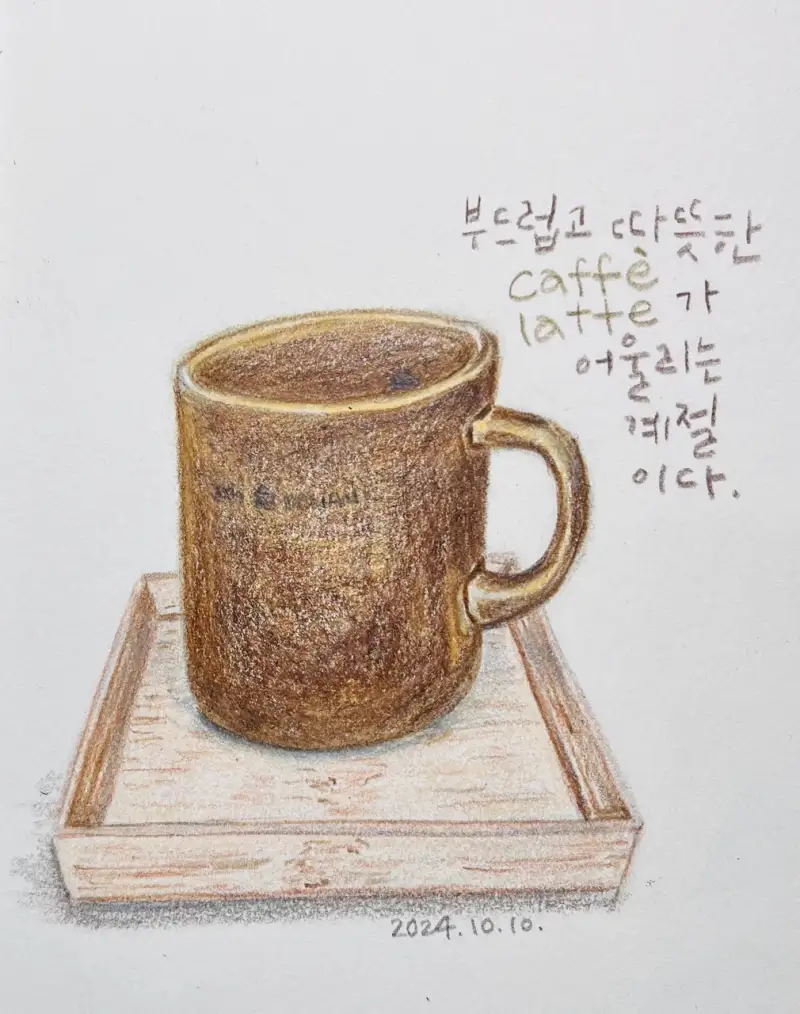 부드럽고 따뜻한
caffè
latte 가
어울리는
계절
이다.
2024.10.10.